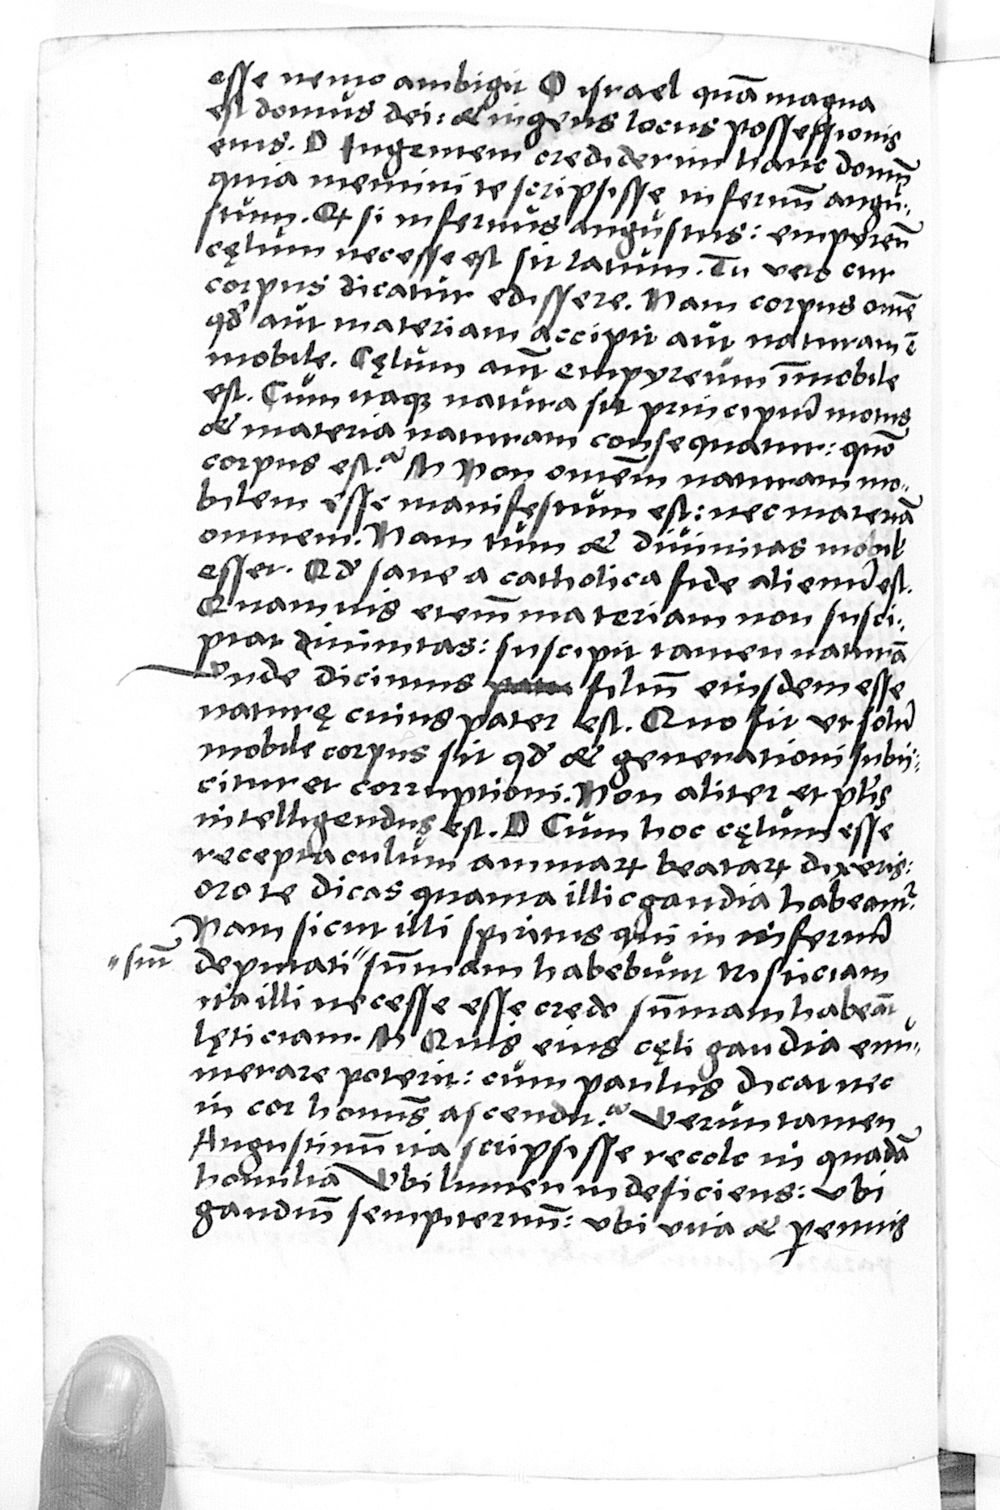 esse nemo ambigit O israel quā magna
est domus dei: & ingens locus possessionis
eius. D Ingentem crediderim hanc domū
quia memini te scripsisse infernū angu-
stum. Et si infernus angustus: empyreū
cęlum necesse est sit latum. Tu vero cur
corpus dicatur edissere. Nam corpus omē
qd aut materiam accipit aut naturam ē
mobile. Cęlum aūt empyreum īmobile
est. Cum itaqȝ natura sit principiū motus
& materia naturam consequatur: quō
corpus est? M Non omēm naturam mo-
bilem esse manifestum est: nec materiā
omnem. Nam tum & divinitas mobil
esset. Qd sane a catholica fide alienū est.
Quamuis etenim materiam non susci-
piat divinitas: suscipit tamen naturā
Unde dicimus filiū eiusdem esse
naturę cuius pater est. Quo fit ut solū
mobile corpus sit qd & generationi subii-
citur et corruptioni. Non aliter et phs
intelligendus est. D Cum hoc cęlum esse
receptaculum animarꝝ beatarꝝ dixeris:
oro te dicas quania illic gaudia habeant?
Nam sicut illi spiritus qui in infernū
"sūt deputati" sūmam habebunt tristiciam
ita illi necesse esse credo sūmam habeāt
lęticiam. M Quis eius cęli gaudia enu-
merare poterit: cum paulus dicat nec
in cor hominis ascendit? Veruntamen
Augustinū ita scripsisse recolo in quadā
homilia Vbi lumen indeficiens: vbi
gaudiū sempiternū: vbi vita & perennis